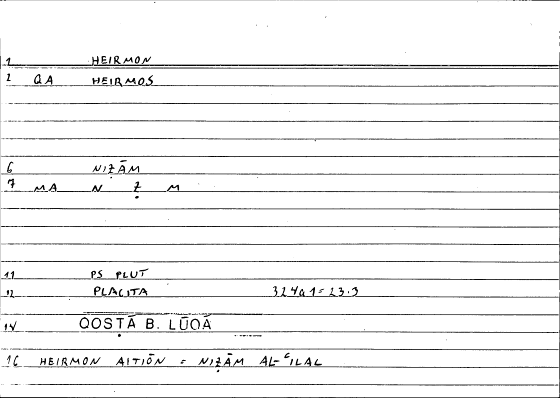 1 HEIRMON
2 QA HEIRMOS
6 NIẒĀM
7 MA N Ẓ M
11 PS PLUT
12 PLACITA 324a1 = 23.3
14 QOSṬĀ B. LŪQĀ
16 HEIRMON AITIŌN = NIẒĀM AL-ʿILAL